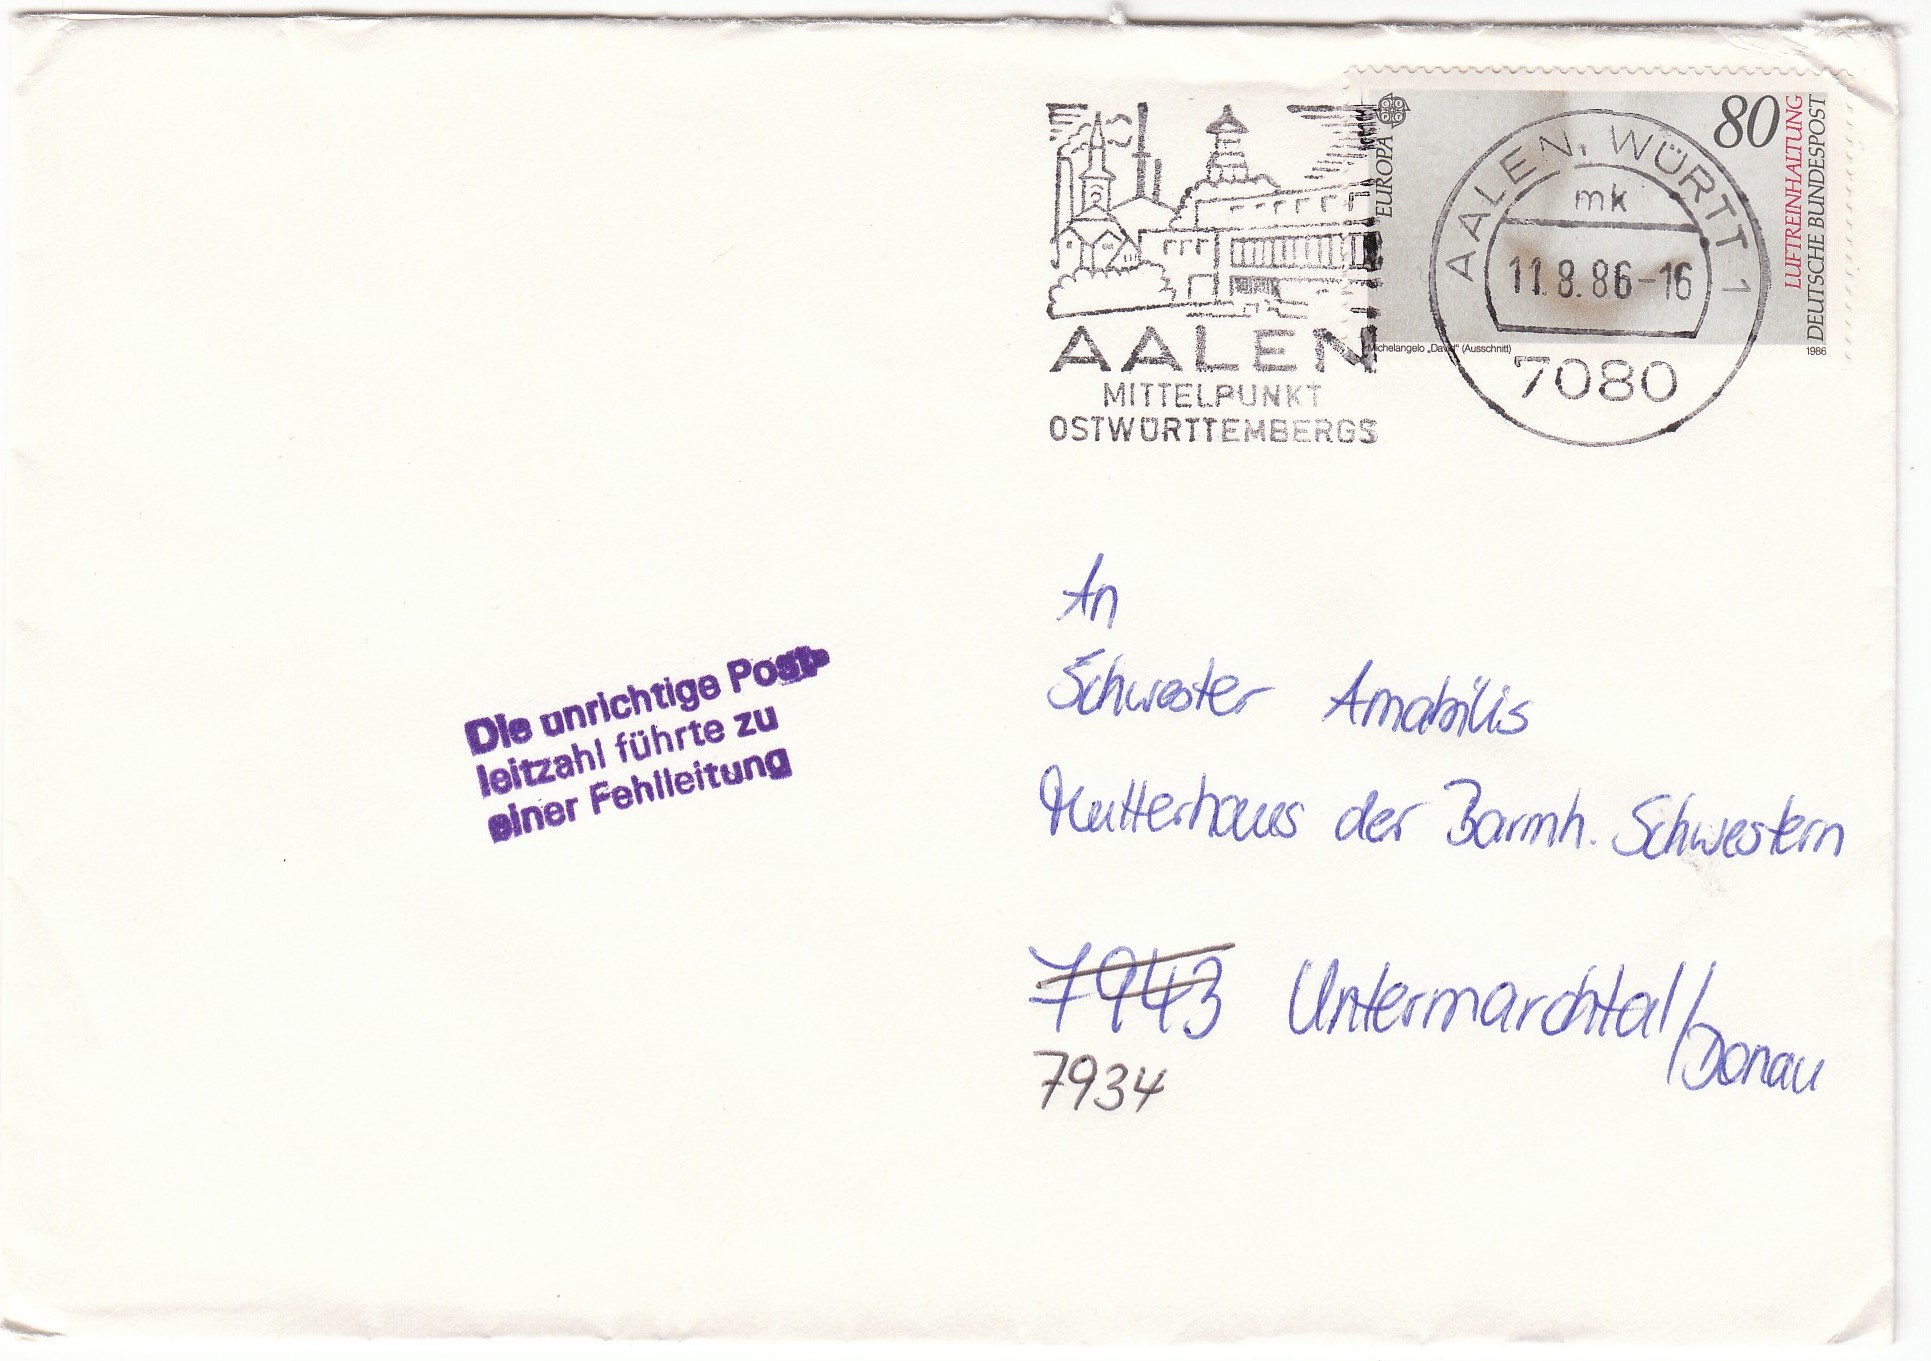 80
EUROPA
LUFTREINHALTUNG
DEUTSCHE BUNDESPOST
Michelangelo „David“ (Ausschnitt)
1986
AALEN, WÜRTT 1
mk
11.8.86-16
7080
AALEN
MITTELPUNKT
OSTWÜRTTEMBERGS
Die unrichtige Post-
leitzahl führte zu
einer Fehlleitung
An
Schwester Amabilis
Mutterhaus der Barmh. Schwestern
7943 Untermarchtal/
Donau
7934